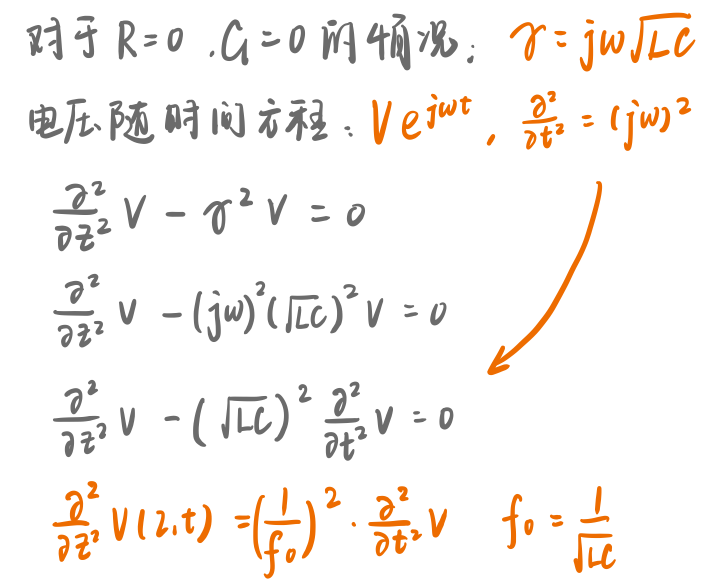 对于 R=0 . G=0 的情况: γ=jω√LC
电压随时间方程: Ve^{jωt}, ∂²/∂t² = (jω)²
∂²/∂z² V - γ² V = 0
∂²/∂z² V - (jω)²(√LC)² V = 0
∂²/∂z² V - (√LC)² ∂²/∂t² V = 0
∂²/∂z² V(z,t) = (1/f₀)² · ∂²/∂t² V f₀ = 1/√LC